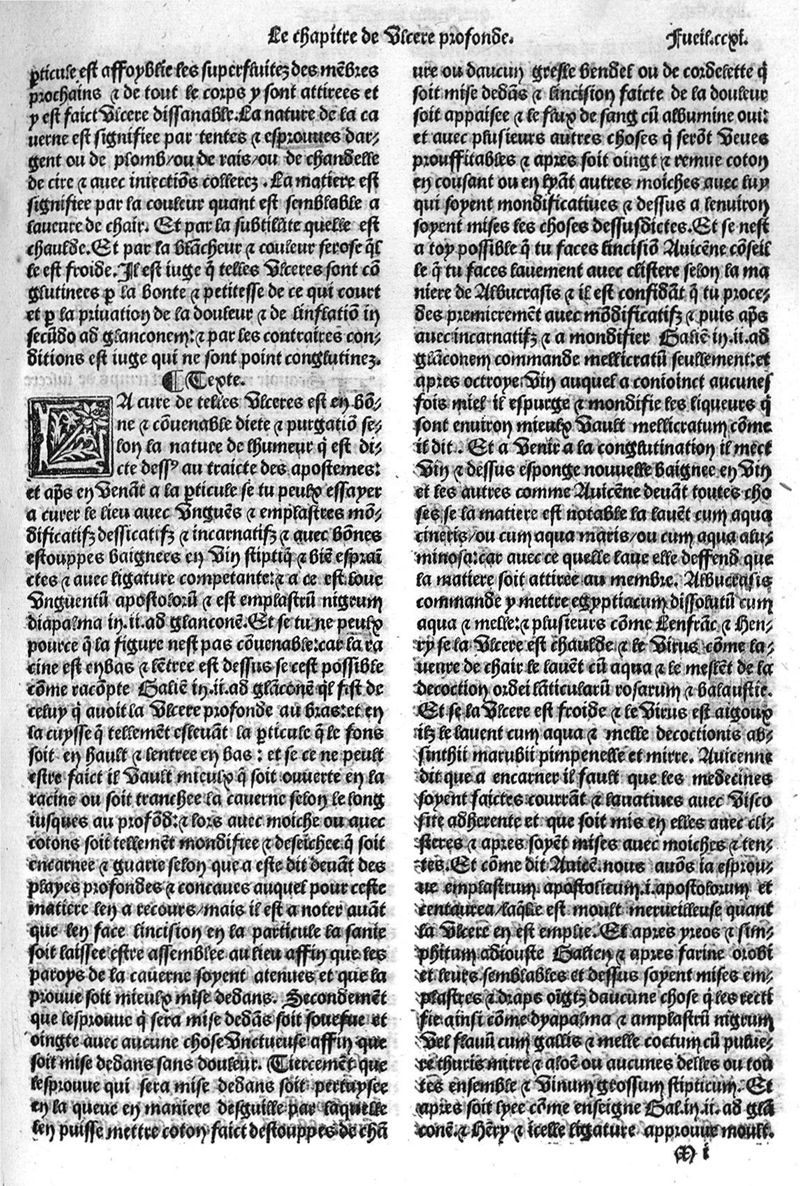 Le chapitre de Vlcere profonde.
Fueil.ccxi.
ꝑticule est affoyblie les superfluitez des mẽbres
prochains ⁊ de tout le corps y sont attirees et
y est faict vlcere dissanable. La nature de la ca
uerne est signifiee par tentes ⁊ esprouues dar-
gent ou de plomb/ou de rais/ou de chandelle
de cire ⁊ auec iniectiõs collerez. La matiere est
signifiee par la couleur quant est semblable a
laueure de chair. Et par la subtilite quelle est
chaulde. Et par la blãcheur ⁊ couleur serose q̃l
le est froide. Il est iuge q̃ telles Vlceres sont cõ
glutinees ꝑ la bonte ⁊ petitesse de ce qui court
et ꝑ la priuation de la douleur ⁊ de linflatiõ in
secũdo ad glanconem: ⁊ par les contraires con-
ditions est iuge qui ne sont point conglutinez.
¶ Texte.
LA cure de telles Vlceres est en bõ-
ne ⁊ cõuenable diete ⁊ purgatiõ se-
lon la nature de lhumeur q̃ est di-
cte dessꝰ au traicte des apostemes:
et ap̃s en Venãt a la ꝑticule se tu peulx essayer
a curer le lieu auec Vnguẽs ⁊ emplastres mõ-
dificatifz dessicatifz ⁊ incarnatifz ⁊ auec bõnes
estouppes baignees en Vin stiptiq̃ ⁊ biẽ espraĩ
ctes ⁊ auec ligature competante: ⁊ a ce est loue
Vnguentũ apostolorũ ⁊ est emplastrũ nigrum
diapalma in.ii.ad glanconẽ. Et se tu ne peulx
pource q̃ la figure nest pas cõuenable: car la ra
cine est enbas ⁊ lẽtree est dessus se cest possible
cõme racõpte Galiẽ in.ii.ad glãconẽ q̃l fist de
celuy q̃ auoit la Vlcere profonde au bras: et en
la cuysse q̃ tellement esleuant la ꝑticule q̃ le fons
soit en hault ⁊ lentree en bas: et se ce ne peult
estre faict il Vault mieulx q̃ soit ouuerte en la
racine ou soit tranchee la cauerne selon le long
iusques au profõd: ⁊ lors auec moiche ou auec
cotons soit tellement mondifiee ⁊ deseichee q̃ soit
encarnee ⁊ guarie selon que a este dit deuãt des
playes profondes ⁊ concaues auquel pour ceste
matiere len a recours/mais il est a noter auãt
que len face lincision en la particule la sanie
soit laissee estre assemblee au lieu affin que les
paroys de la cauerne soyent atenues et que la
prouue soit mieulx mise dedans. Secondement
que lesprouue q̃ sera mise dedãs soit souefue et
oingte auec aucune chose Vnctueuse affin que
soit mise dedans sans douleur. Tiercement que
lesprouue qui sera mise dedans soit pertuysee
en la queue en maniere desguille par laquelle
len puisse mettre coton faict destouppes de chã
ure ou daucun gresle bendel ou de cordelette q̃
soit mise dedãs ⁊ lincision faicte de la douleur
soit appaisee ⁊ le flux de sang cũ albumine oui:
et auec plusieurs autres choses q̃ serõt Veues
prouffitables ⁊ apres soit oingt ⁊ remue coton
en cousant ou en lyãt autres moiches auec luy
qui soyent mondificatiues ⁊ dessus a lenuiron
soyent mises les choses dessusdictes. Et se nest
a toy possible q̃ tu faces lincisiõ Auicẽne cõseil
le q̃ tu faces lauement auec clistere selon la ma
niere de Albucrasis ⁊ il est confidãt q̃ tu proce-
des premierement auec mõdificatifz ⁊ puis ap̃s
auec incarnatifz ⁊ a mondifier Galiẽ in.ii.ad
glãconem commande mellicratũ seullement: et
apres octroye Vin auquel a conioinct aucunes
fois miel il espurge ⁊ mondifie les liqueurs q̃
sont enuiron mieulx Vault mellicratum cõme
il dit. Et a Venir a la conglutination il mect
Vin ⁊ dessus esponge nouuelle baignee en Vin
et les autres comme Auicẽne deuãt toutes cho
ses se la matiere est notable la lauẽt cum aqua
cineris/ou cum aqua maris/ou cum aqua alu-
minosa: car auec ce quelle laue elle deffend que
la matiere soit attiree au membre. Albucrasis
commande y mettre egyptiacum dissolutũ cum
aqua ⁊ melle: ⁊ plusieurs cõme Lenfrãc ⁊ Hen-
ry se la Vlcere est chaulde ⁊ le Virus cõme la-
ueure de chair le lauẽt cũ aqua ⁊ le meslẽt de la
decoction ordei lẽticularũ rosarum ⁊ balaustie.
Et se la Vlcere est froide ⁊ le Virus est aigoux
ilz le lauent cum aqua ⁊ melle decoctionis ab-
sinthii marubii pimpenelle et mirre. Auicenne
dit que a encarner il fault que les medecines
soyent faictes courrãt ⁊ lauatiues auec Visco
site adherente et que soit mis en elles auec cli-
steres ⁊ apres soyẽt mises auec moiches ⁊ ten-
tes. Et cõme dit Auicẽ. nous auõs ia esprou-
ue emplastrum apostolicum.i.apostolorum et
centaurea/laq̃lle est moult merueilleuse quant
la Vlcere en est emplie. Et apres yreos ⁊ sim-
phitum adiouste Galien ⁊ apres farine orobi
et leurs semblables et dessus soyent mises em-
plastres ⁊ draps oĩgtz daucune chose q̃ les recti
fie ainsi cõme dyapalma ⁊ amplastrũ nigrum
Vel flauũ cum gallis ⁊ melle coctum cũ puluie-
re thuris mirre ⁊ aloe ou aucunes delles ou tou
tes ensemble ⁊ Vinum grossum stipticum. Et
apres soit lyee cõme enseigne Gal.in.ii. ad glã
conẽ. ⁊ Hẽry ⁊ icelle ligature approuue moult.
(X) i